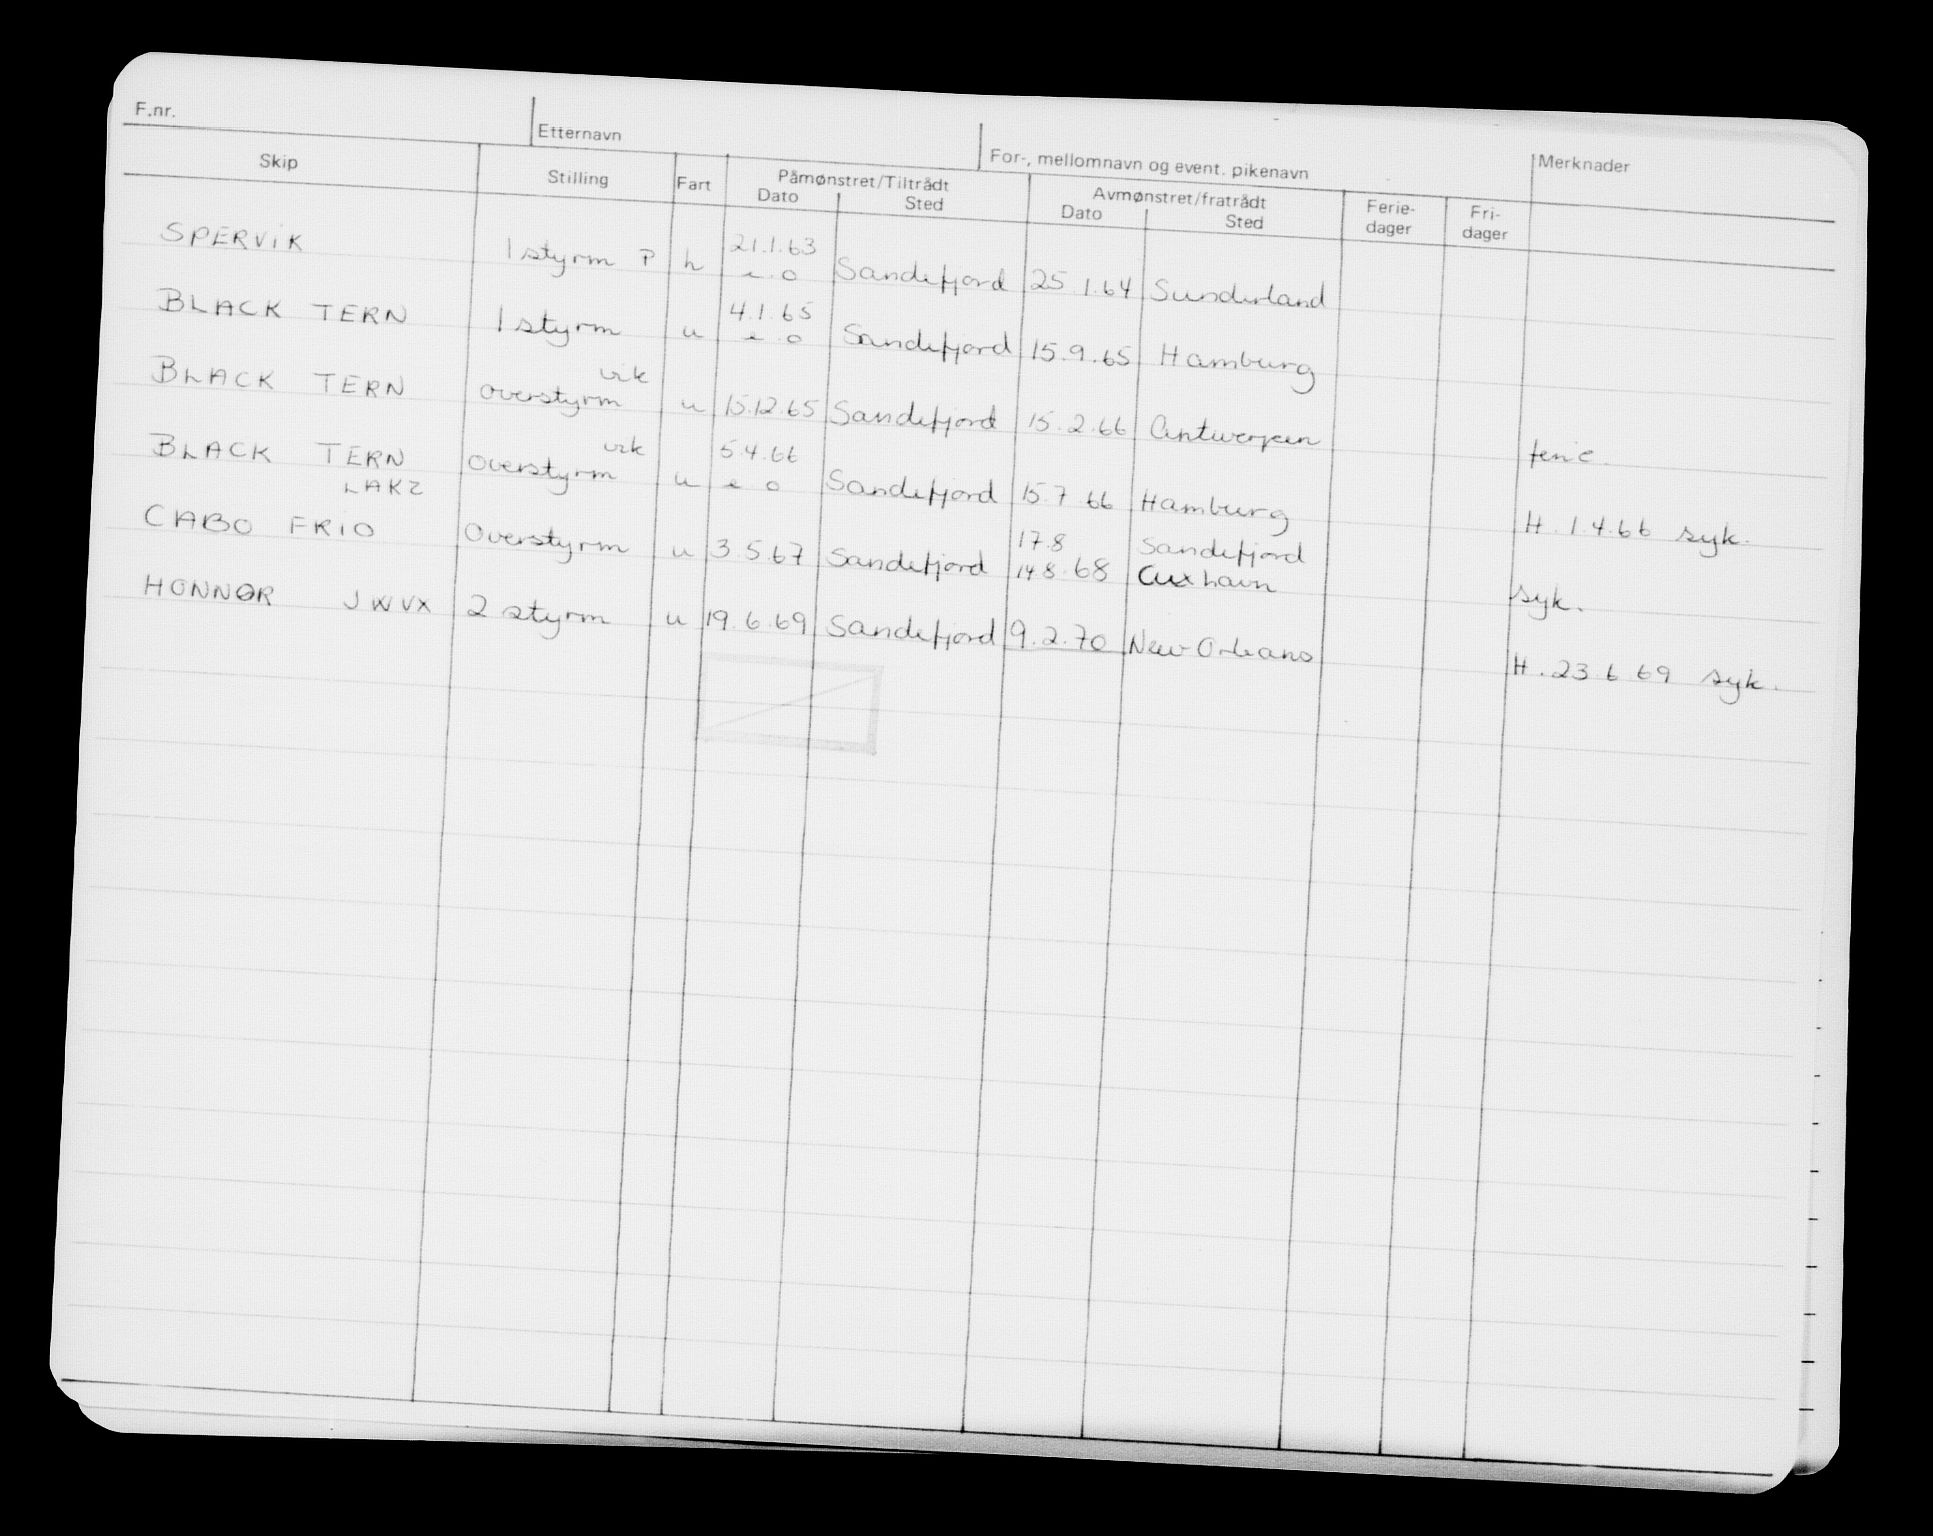 F.nr. Etternavn For-, mellomnavn og event. pikenavn Merknader
Skip Stilling Fart Påmønstret/Tiltrådt Avmønstret/fratrådt Ferie- Fri-
Dato Sted Dato Sted dager dager
21.1.63
SPERVIK 1 styrm P h e.o Sandefjord 25.1.64 Sunderland
4.1.65
BLACK TERN 1 styrm u e.o Sandefjord 15.9.65 Hamburg
vik
BLACK TERN overstyrm u 15.12.65 Sandefjord 15.2.66 Antwerpen ferie.
vik 5.4.66
BLACK TERN overstyrm u e o Sandefjord 15.7 66 Hamburg H. 1.4.66 syk.
LAKZ 17.8 Sandefjord
CABO FRIO Overstyrm u 3.5.67 Sandefjord 14.8.68 Cuxhavn syk.
HONNØR JWVX 2 styrm u 19.6.69 Sandefjord 9.2.70 New Orleans H. 23.6 69 syk.